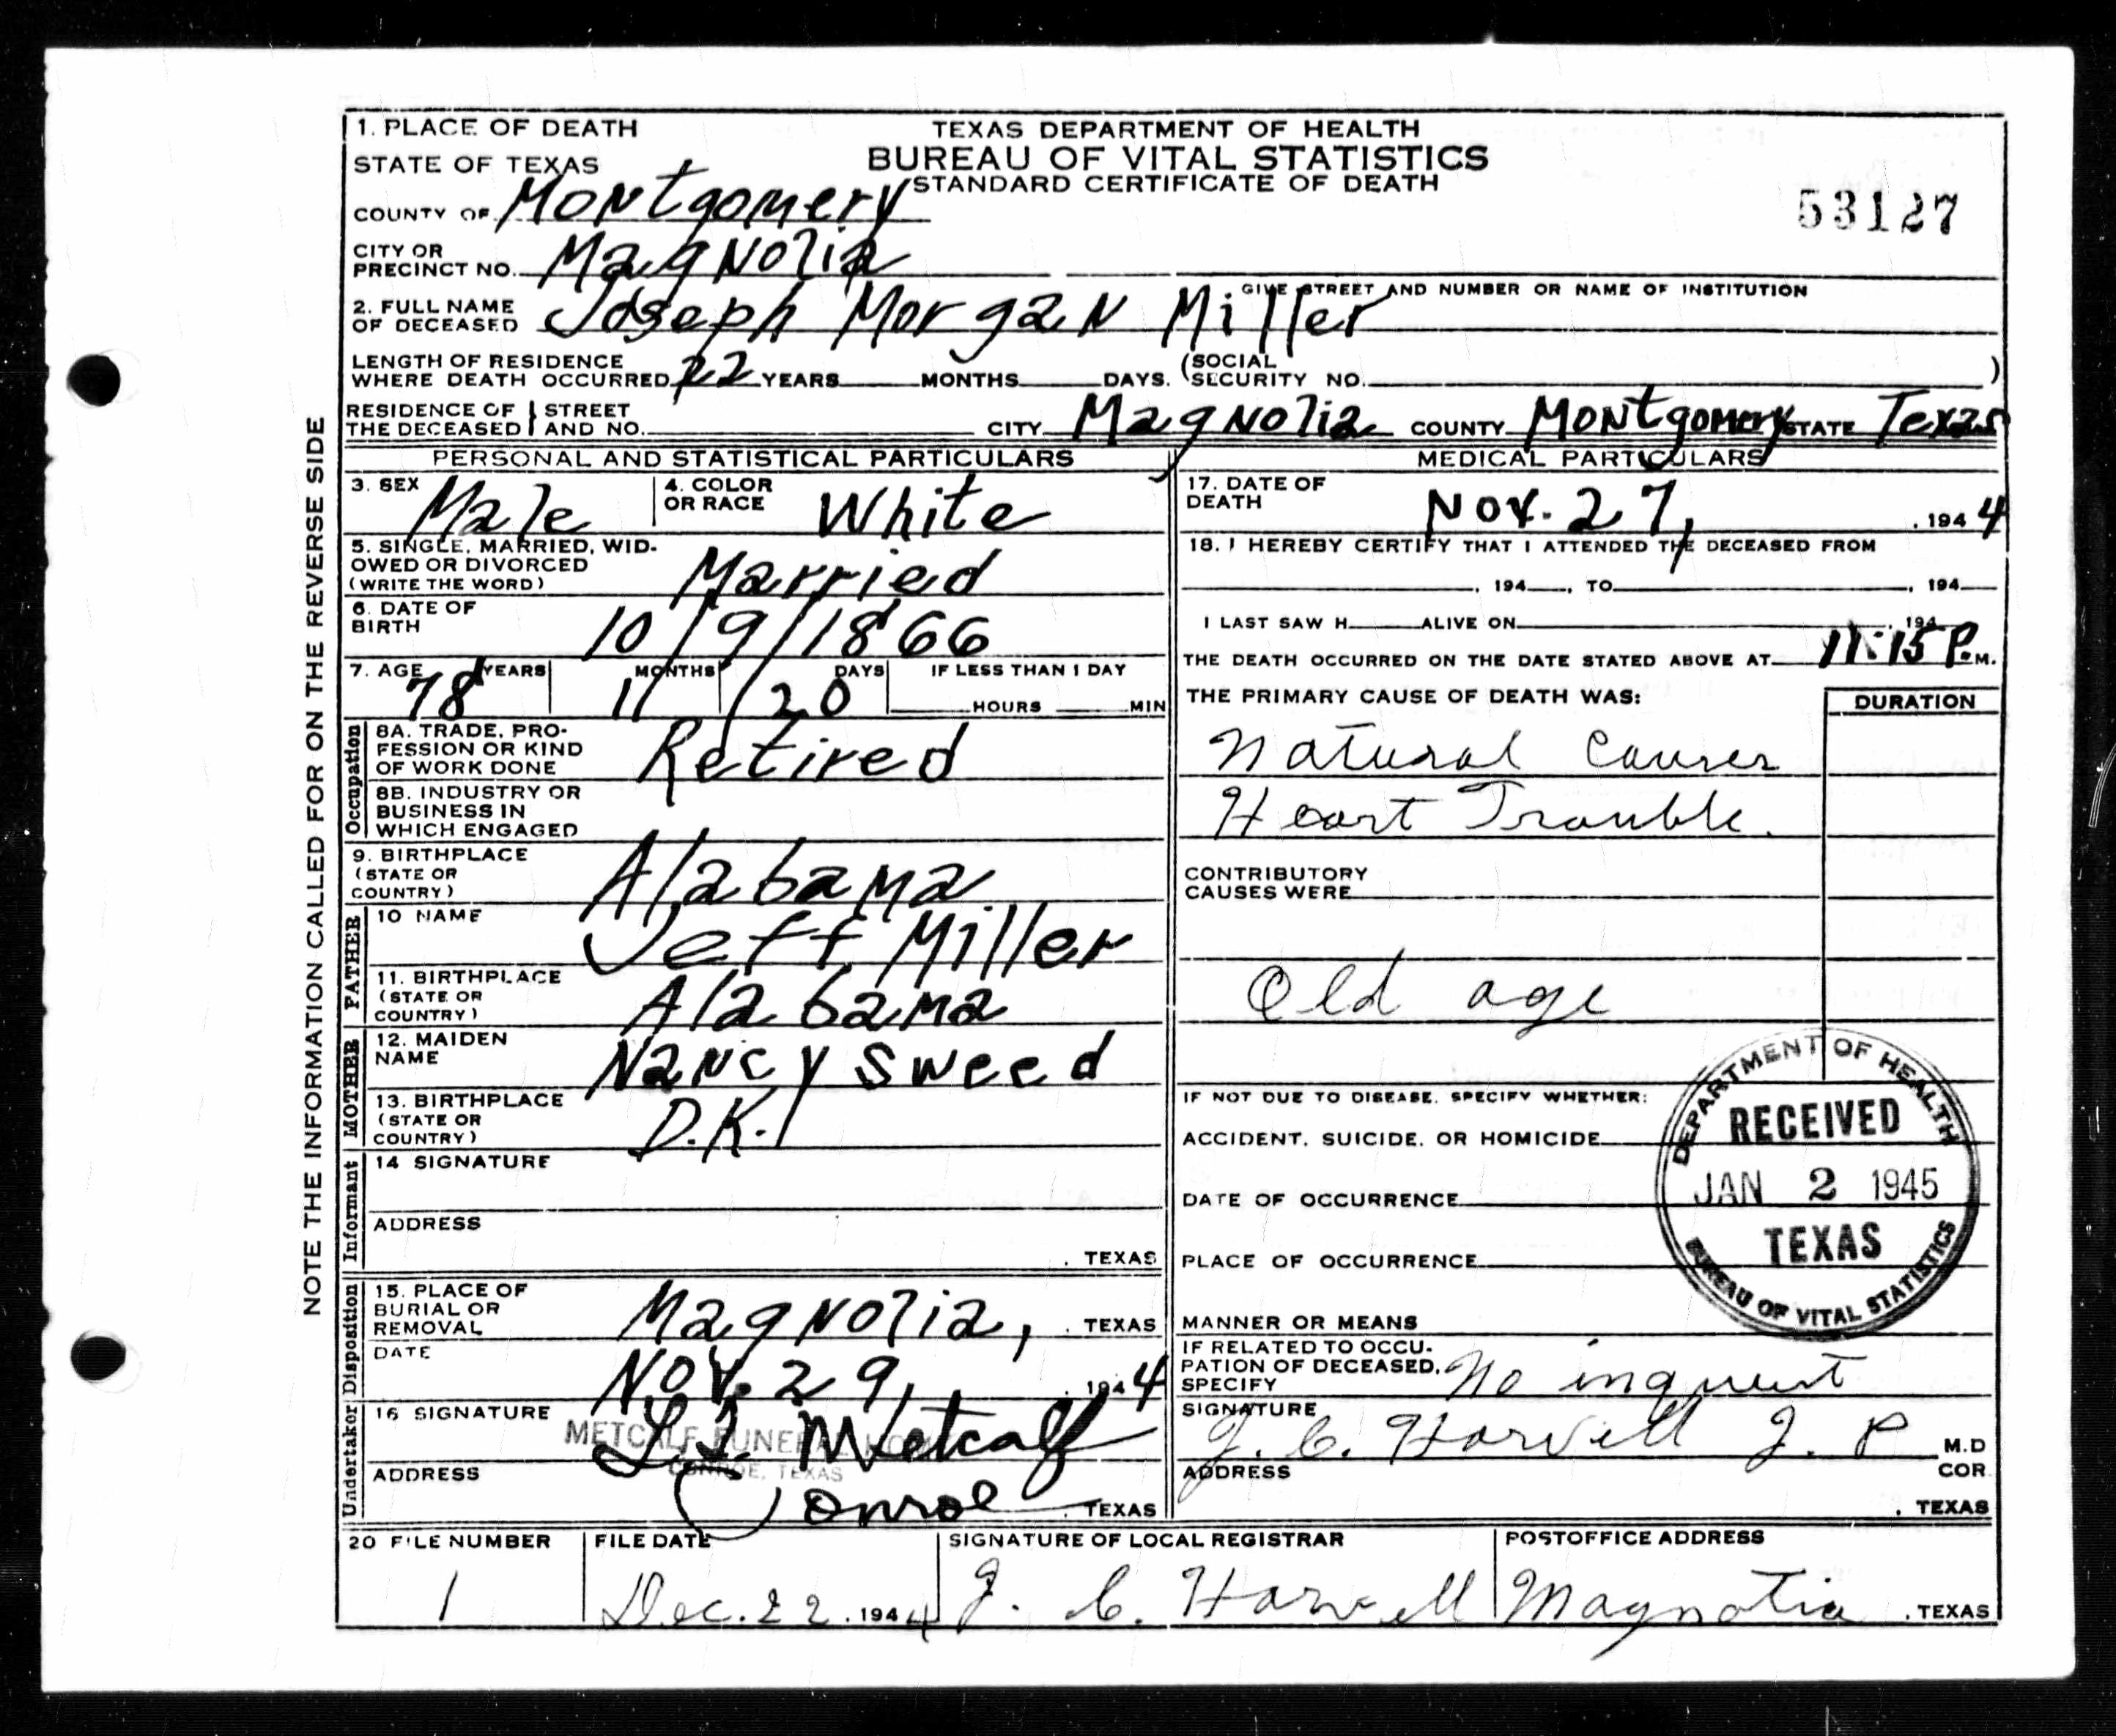 1. PLACE OF DEATH
TEXAS DEPARTMENT OF HEALTH
STATE OF TEXAS
BUREAU OF VITAL STATISTICS
STANDARD CERTIFICATE OF DEATH
53127
COUNTY OF Montgomery
CITY OR PRECINCT NO. Magnolia
GIVE STREET AND NUMBER OR NAME OF INSTITUTION
2. FULL NAME OF DECEASED Joseph Morgan Miller
LENGTH OF RESIDENCE WHERE DEATH OCCURRED 22 YEARS MONTHS DAYS. (SOCIAL SECURITY NO. )
RESIDENCE OF THE DECEASED STREET AND NO. CITY Magnolia COUNTY Montgomery STATE Texas
NOTE THE INFORMATION CALLED FOR ON THE REVERSE SIDE
PERSONAL AND STATISTICAL PARTICULARS
3. SEX Male 4. COLOR OR RACE White
5. SINGLE, MARRIED, WIDOWED OR DIVORCED (WRITE THE WORD) Married
6. DATE OF BIRTH 10/9/1866
7. AGE 78 YEARS 11 MONTHS 20 DAYS IF LESS THAN 1 DAY HOURS MIN
Occupation
8A. TRADE, PROFESSION OR KIND OF WORK DONE Retired
8B. INDUSTRY OR BUSINESS IN WHICH ENGAGED
9. BIRTHPLACE (STATE OR COUNTRY) Alabama
FATHER
10 NAME Jeff Miller
11. BIRTHPLACE (STATE OR COUNTRY) Alabama
MOTHER
12. MAIDEN NAME Nancy Sweed
13. BIRTHPLACE (STATE OR COUNTRY) D.K.
Informant
14 SIGNATURE
ADDRESS
. TEXAS
Disposition
15. PLACE OF BURIAL OR REMOVAL Magnolia, . TEXAS
DATE Nov. 29, . 1944
Undertaker
16 SIGNATURE L.L. Metcalf
METCALF FUNERAL HOME
CONROE, TEXAS
ADDRESS Conroe TEXAS
MEDICAL PARTICULARS
17. DATE OF DEATH Nov. 27, . 1944
18. I HEREBY CERTIFY THAT I ATTENDED THE DECEASED FROM
, 194 , TO , 194
I LAST SAW H ALIVE ON , 194
THE DEATH OCCURRED ON THE DATE STATED ABOVE AT 11:15 P. M.
THE PRIMARY CAUSE OF DEATH WAS: DURATION
Natural Causes
Heart Trouble.
CONTRIBUTORY CAUSES WERE
Old age
IF NOT DUE TO DISEASE, SPECIFY WHETHER:
ACCIDENT, SUICIDE, OR HOMICIDE
DATE OF OCCURRENCE
PLACE OF OCCURRENCE
MANNER OR MEANS
DEPARTMENT OF HEALTH
RECEIVED
JAN 2 1945
TEXAS
BUREAU OF VITAL STATISTICS
IF RELATED TO OCCUPATION OF DECEASED, SPECIFY No inquest
SIGNATURE J. C. Harvell J. P M.D
COR
ADDRESS
. TEXAS
20 FILE NUMBER 1
FILE DATE Dec. 22 . 1944
SIGNATURE OF LOCAL REGISTRAR J. C. Harvell
POSTOFFICE ADDRESS Magnolia . TEXAS